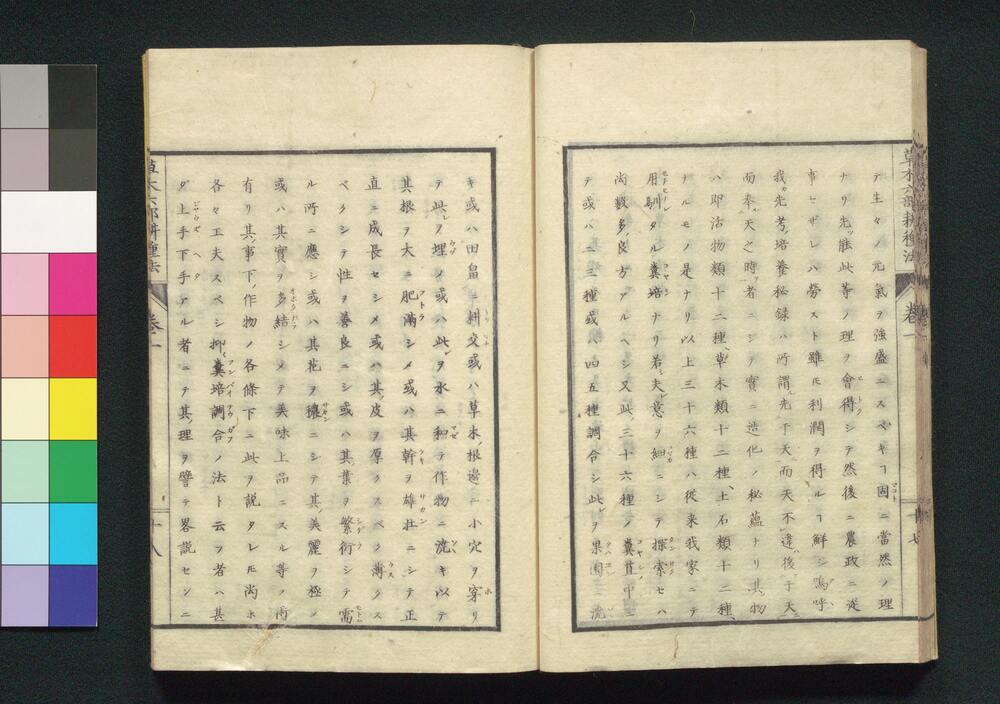 草木六部耕種法 卷二 十七
テ生々ノ元氣ヲ強盛ニスベキヿ固ニ當然ノ理
ナリ先ツ能此等ノ理ヲ會得シテ然後ニ農政ニ從
事セザレハ勞スト雖𪜈利潤ヲ得ルヿ鮮シ嗚呼
我カ先考ノ培養秘録ハ所謂ル先于天而天不違後于天
而奉天之時者ニシテ實ニ造化ノ秘蘊トリ其物
ハ即活物類十二種、草木類十二種、土石類十二種、
ナルモノ是ナリ以上三十六種ハ從来我家ニテ
用馴タル糞培ナリ若シ夫レ意ヲ細ニシテ探索セハ
尚數多ノ良方アルヘシ又此三十六種ノ糞苴中ニ
テ或ハ二三種或ハ四五種調合シ此レヲ果園ニ澆
キ或ハ田畠ニ耕交或ハ草木ノ根邊ニ小穴ヲ穿リ
テ此レヲ埋メ或ハ此レヲ水ニ和テ作物ニ澆キ以テ
其根ヲ大ニ肥滿シメ或ハ其幹ヲ雄壯ニシテ正
直ニ成長セシメ或ハ其皮ヲ厚クスベク薄クス
ベクシテ性ヲ善良ニシ或ハ其葉ヲ繁衍シテ需
ル所ニ應シ或ハ其花ヲ穰ニシテ其美麗ヲ極メ
或ハ其實ヲ多結シメテ美味上品ニスル等ノ
有リ其事下ノ作物ノ各條下ニ此ヲ説タレ𪜈尚ホ
各々工夫スベシ抑〻糞培調合ノ法ト云フ者ハ甚
ダ上手下手アル者ニテ其理ヲ譬テ畧説センニ
草木六部耕種法 卷二 十八